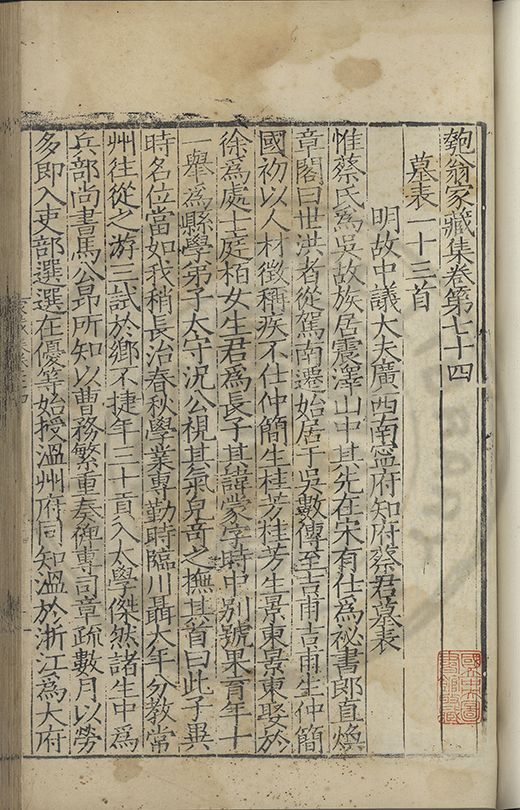 匏翁家藏集卷第七十四
墓表一十三首
明故中議大夫廣西南寧府知府蔡君墓表
惟蔡氏為吳故族居震澤山中其先在宋有仕為祕書郎直煥
章閣曰世洪者從駕南遷始居于吳數傳至吉甫吉甫生仲簡
國初以人材徵稱疾不仕仲簡生桂芳桂芳生景東景東娶於
徐為處士庭柏女生君為長子其諱蒙字時中別號果齋年十
一舉為縣學弟子太守況公視其氣皃竒之撫其首曰此子異
時名位當如我稍長治春秋學業專勤時臨川聶大年分教常
州往從之游三試於鄉不捷年三十貢入太學傑然諸生中為
兵部尚書馬公昂所知以曹務繁重奏俾專司章疏數月以勞
多即入吏部選選在優等始授溫州府同知溫於浙江為大府
國立中央圖書館收藏